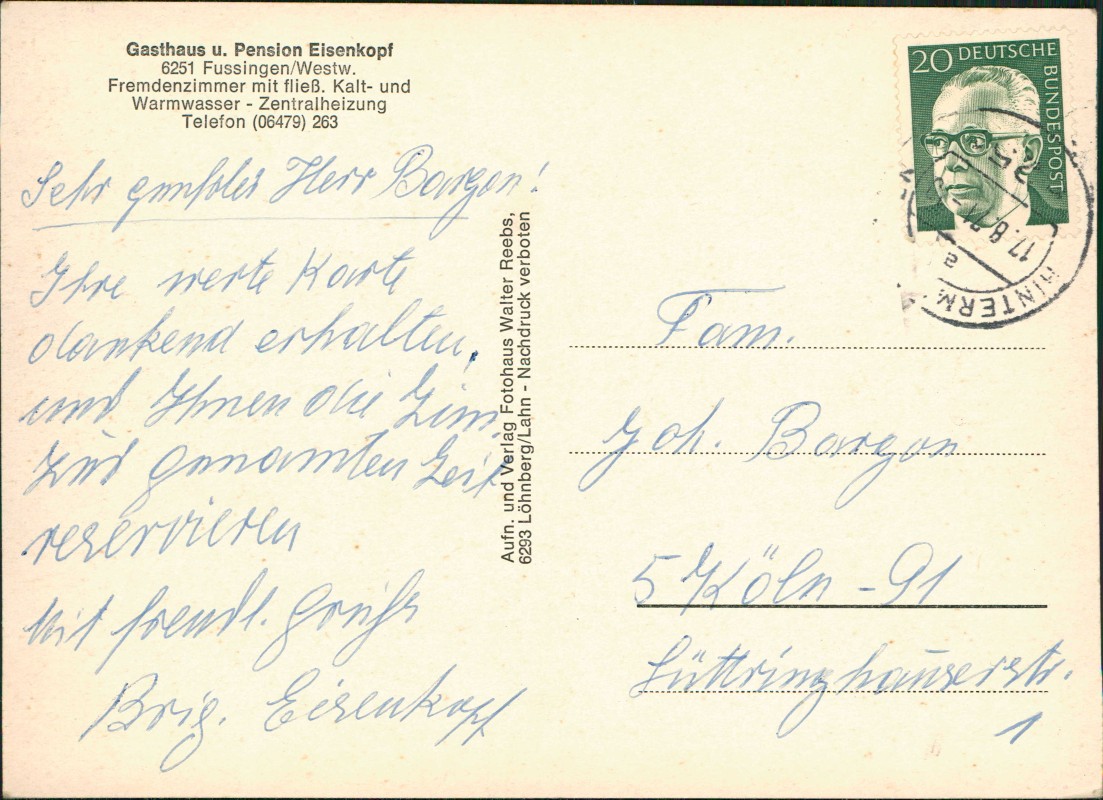 Gasthaus u. Pension Eisenkopf
6251 Fussingen/Westw.
Fremdenzimmer mit fließ. Kalt- und
Warmwasser - Zentralheizung
Telefon (06479) 263
Sehr geehrter Herr Bargon!
Ihre werte Karte
dankend erhalten,
und Ihnen die Zim.
zur genannten Zeit
reservieren
Mit freundl. Grüße
Brig. Eisenkopf
Aufn. und Verlag Fotohaus Walter Reebs,
6293 Löhnberg/Lahn - Nachdruck verboten
20 DEUTSCHE
BUNDESPOST
17.8.
HINTERM
Fam.
Joh. Bargon
5 Köln - 91
Lüttringhauserstr.
1